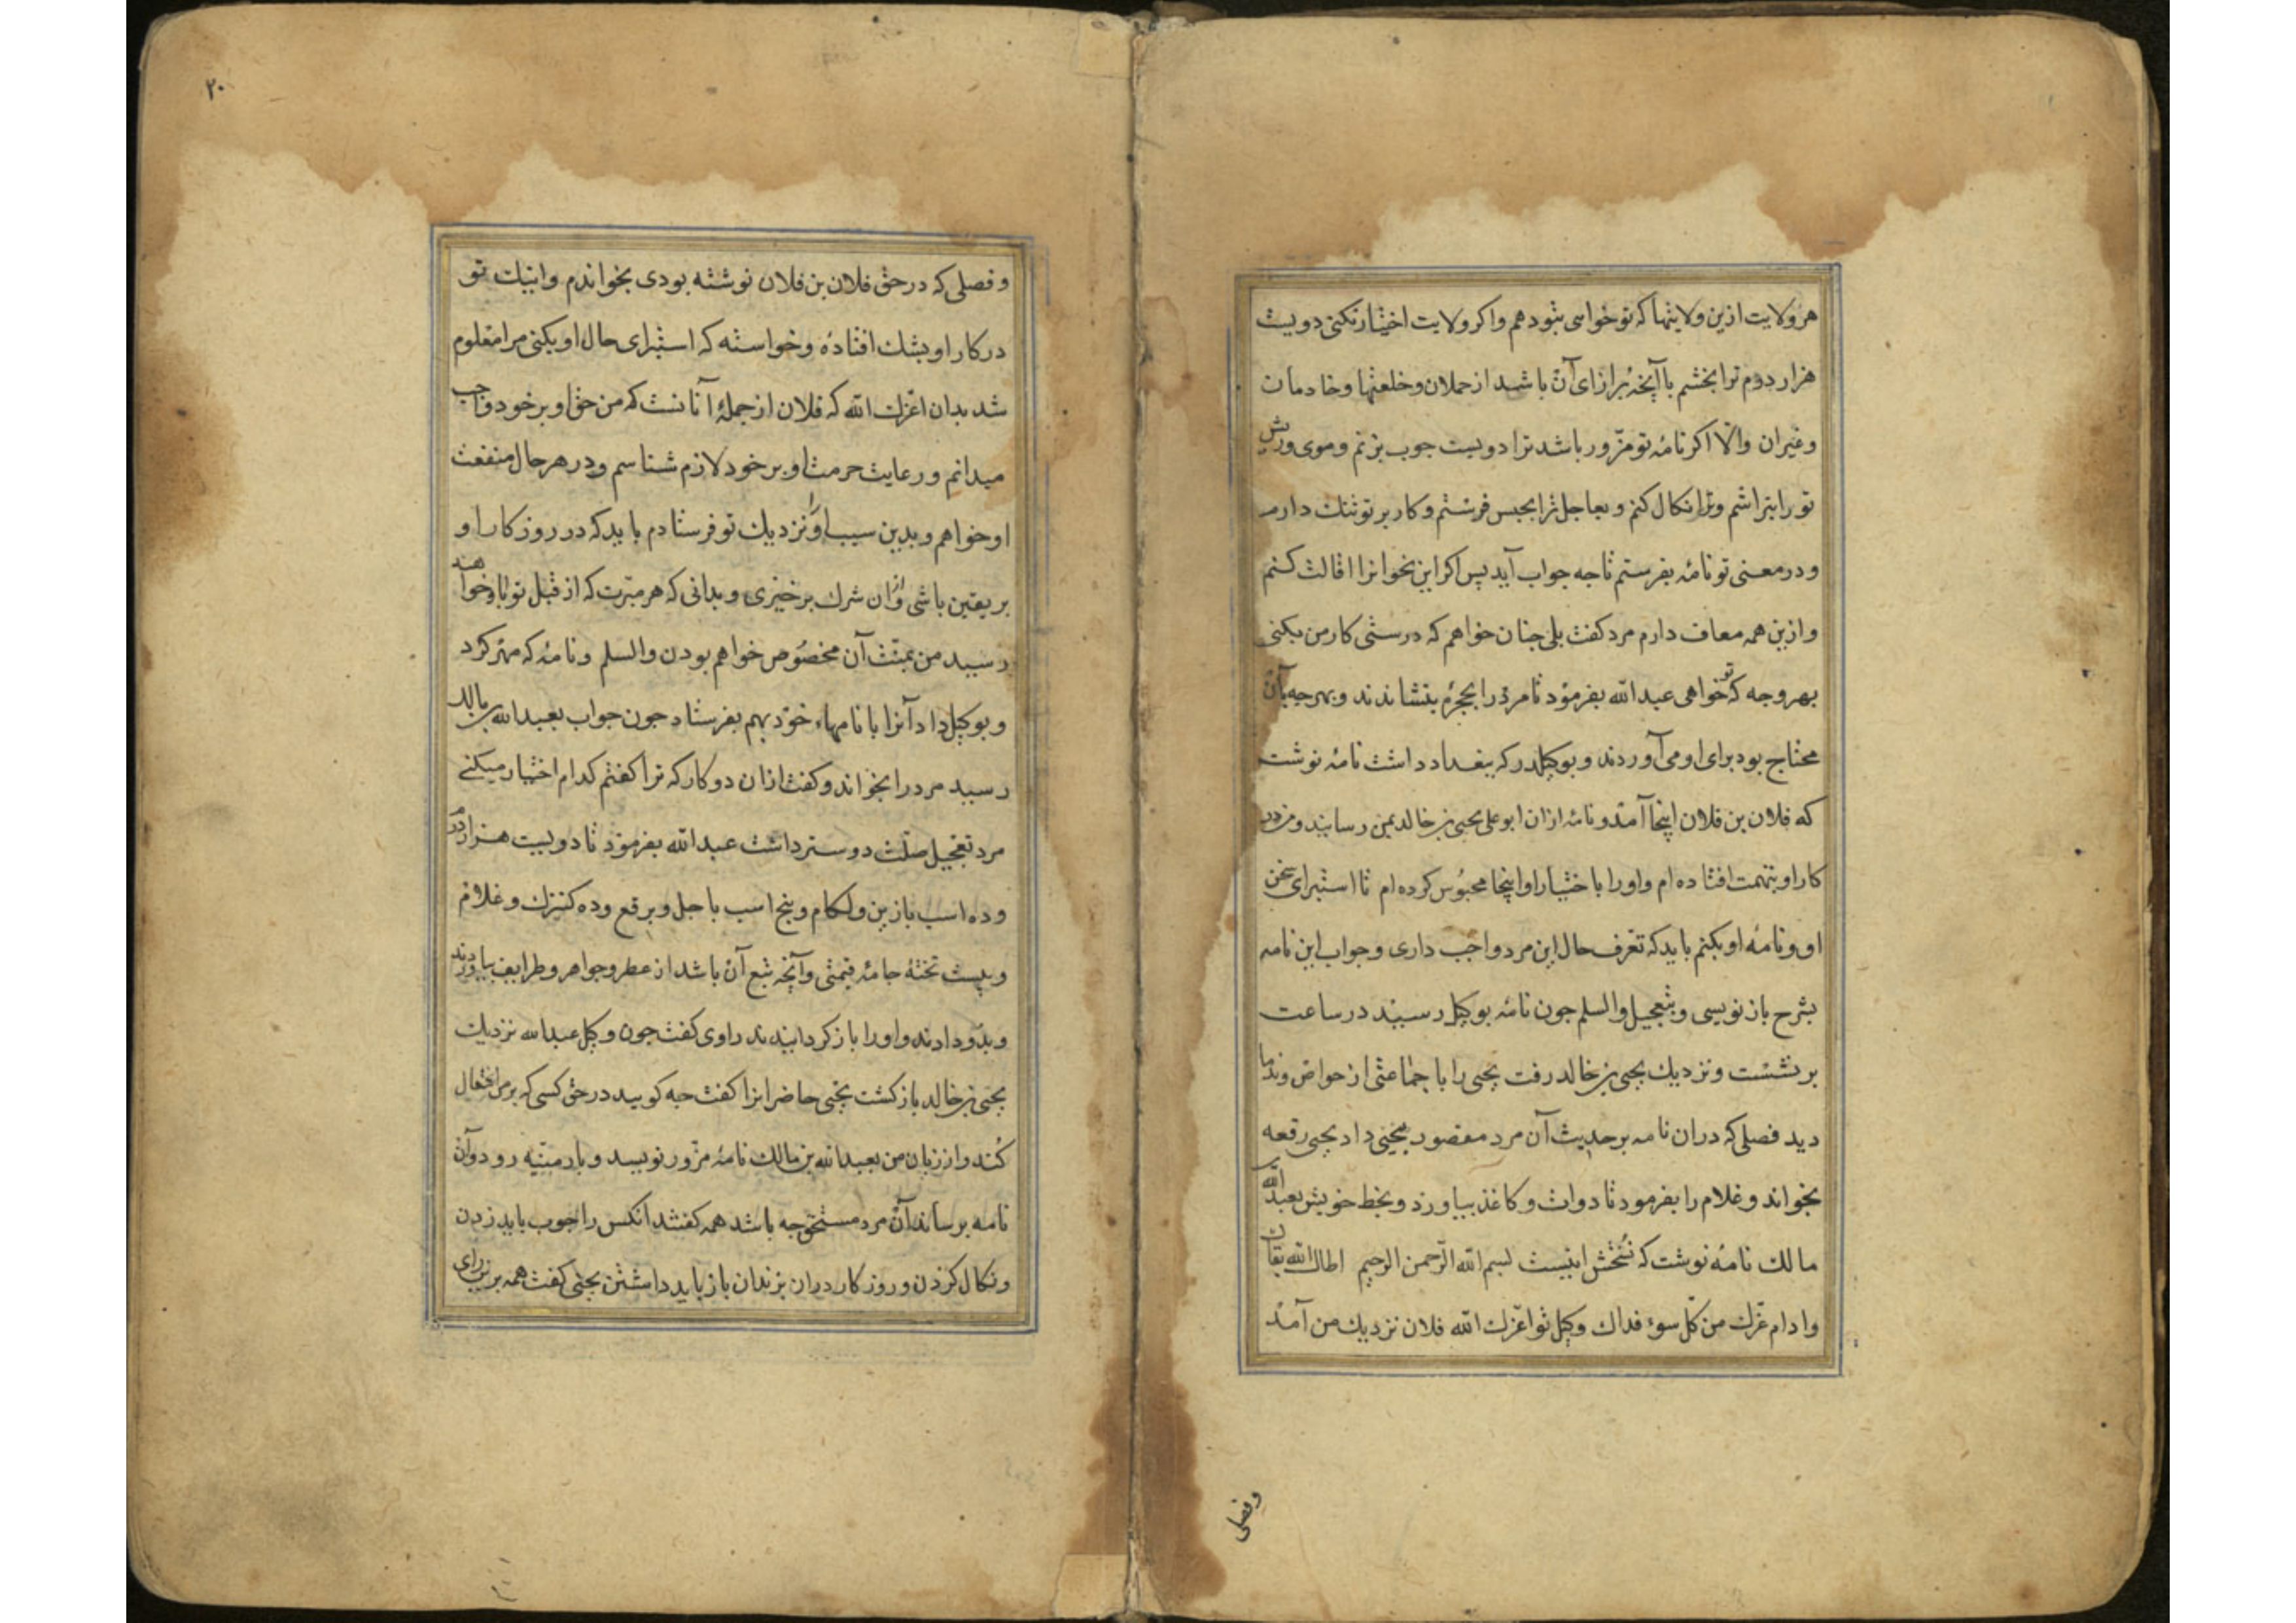 هر ولایت ازین ولایتها که تو خواهی بتو دهم واکر ولایت اختیار نکنی دویست
هزار درم ترا بخشم با آنچه برازای آن باشد از حملان وخلعتها وخادمان
وغیران والا اکر نامۀ تو مزور باشد ترا دویست جوب بزنم وموی وریش
تو را بتراشم وترا نکال کنم وبعاجل ترا بحبس فرستم وکار بر تو تنك دارم
ودر معنی تو نامۀ بفرستم تا جه جواب آید پس اکر این نخواترا اقالت کنم
وازین همه معاف دارم مرد کفت بلی جنان خواهم که درستی کار من بکنی
بهر وجه که تو خواهی عبدالله بفرمود تا مرد را بحجرۀ بنشاندند وبهر جه بآن
محتاج بود برای او می آوردند وبوکیلدر که ببغداد داشت نامۀ نوشت
که فلان بن فلان اینجا آمد ونامۀ ازان ابو علی یحیی بن خالد بمن رسانید ومن در
کار او بتهمت افتاده ام واورا باختیار او اینجا محبوس کرده ام تا استبرای سخن
او ونامۀ او بکنم باید که تعرف حال این مرد واجب داری وجواب این نامه
بشرح باز نویسی وبتعجیل والسلم جون نامۀ بوکیل رسید در ساعت
برنشست ونزدیك یحیی بن خالد رفت یحیی را با جماعتی از خواص وندما
دید فصلی که دران نامه بر حدیث آن مرد مقصور بیحیی داد یحیی رقعه
بخواند وغلام را بفرمود تا دوات وکاغذ بیاورد وبخط خویش بعبدالله بن
مالك نامۀ نوشت که نسختش اینست بسم الله الرحمن الرحیم اطال الله بقاك
وادام عزك من کل سوء فداك وکیل تو اعزك الله فلان نزدیك من آمد
وفصلی
۲۰
وفصلی که در حق فلان بن فلان نوشته بودی بخواندم واینك تو
در کار او بشك افتادۀ وخواسته که استبرای حال او بکنی مرا معلوم
شد بدان اعزك الله که فلان از جملۀ آنانست که من حق او بر خود واجب
میدانم ورعایت حرمت او بر خود لازم شناسم ودر هر حال منفعت
او خواهم وبدین سبب اورا نزدیك تو فرستادم باید که در روزکار او
بر یقین باشی وازان شرك برخیزی وبدانی که هر مبرت که از قبل تو باو خواهد
رسید من بمنت آن مخصوص خواهم بودن والسلم ونامۀ که مهر کرد
وبوکیل داد آنرا با نامهاء خود بهم بفرستاد جون جواب بعبدالله بن مالك
رسید مرد را بخواند وکفت ازان دو کار که ترا کفتم کدام اختیار میکنی
مرد تعجیل صلت دوستر داشت عبدالله بفرمود تا دویست هزار درم
وده اسب با زین ولکام وپنج اسب با جل وبرقع وده کنیزك وغلام
وبیست تختۀ جامۀ قیمتی وآنچه تبع آن باشد از عطر وجواهر وطرایف بیاوردند
وبدو دادند واورا باز کردانیدند راوی کفت جون وکیل عبدالله نزدیك
یحیی بن خالد باز کشت یحیی حاضرانرا کفت جه کویید در حق کسی که بر من افتعال
کند واز زبان من بعبدالله بن مالك نامۀ مزور نویسد وبارمنیه رود وآن
نامه برساند آن مرد مستحق جه باشد همه کفتند انکس را جوب باید زدن
ونکال کردن وروزکار دران بزندان باز باید داشتن یحیی کفت همه برین رای